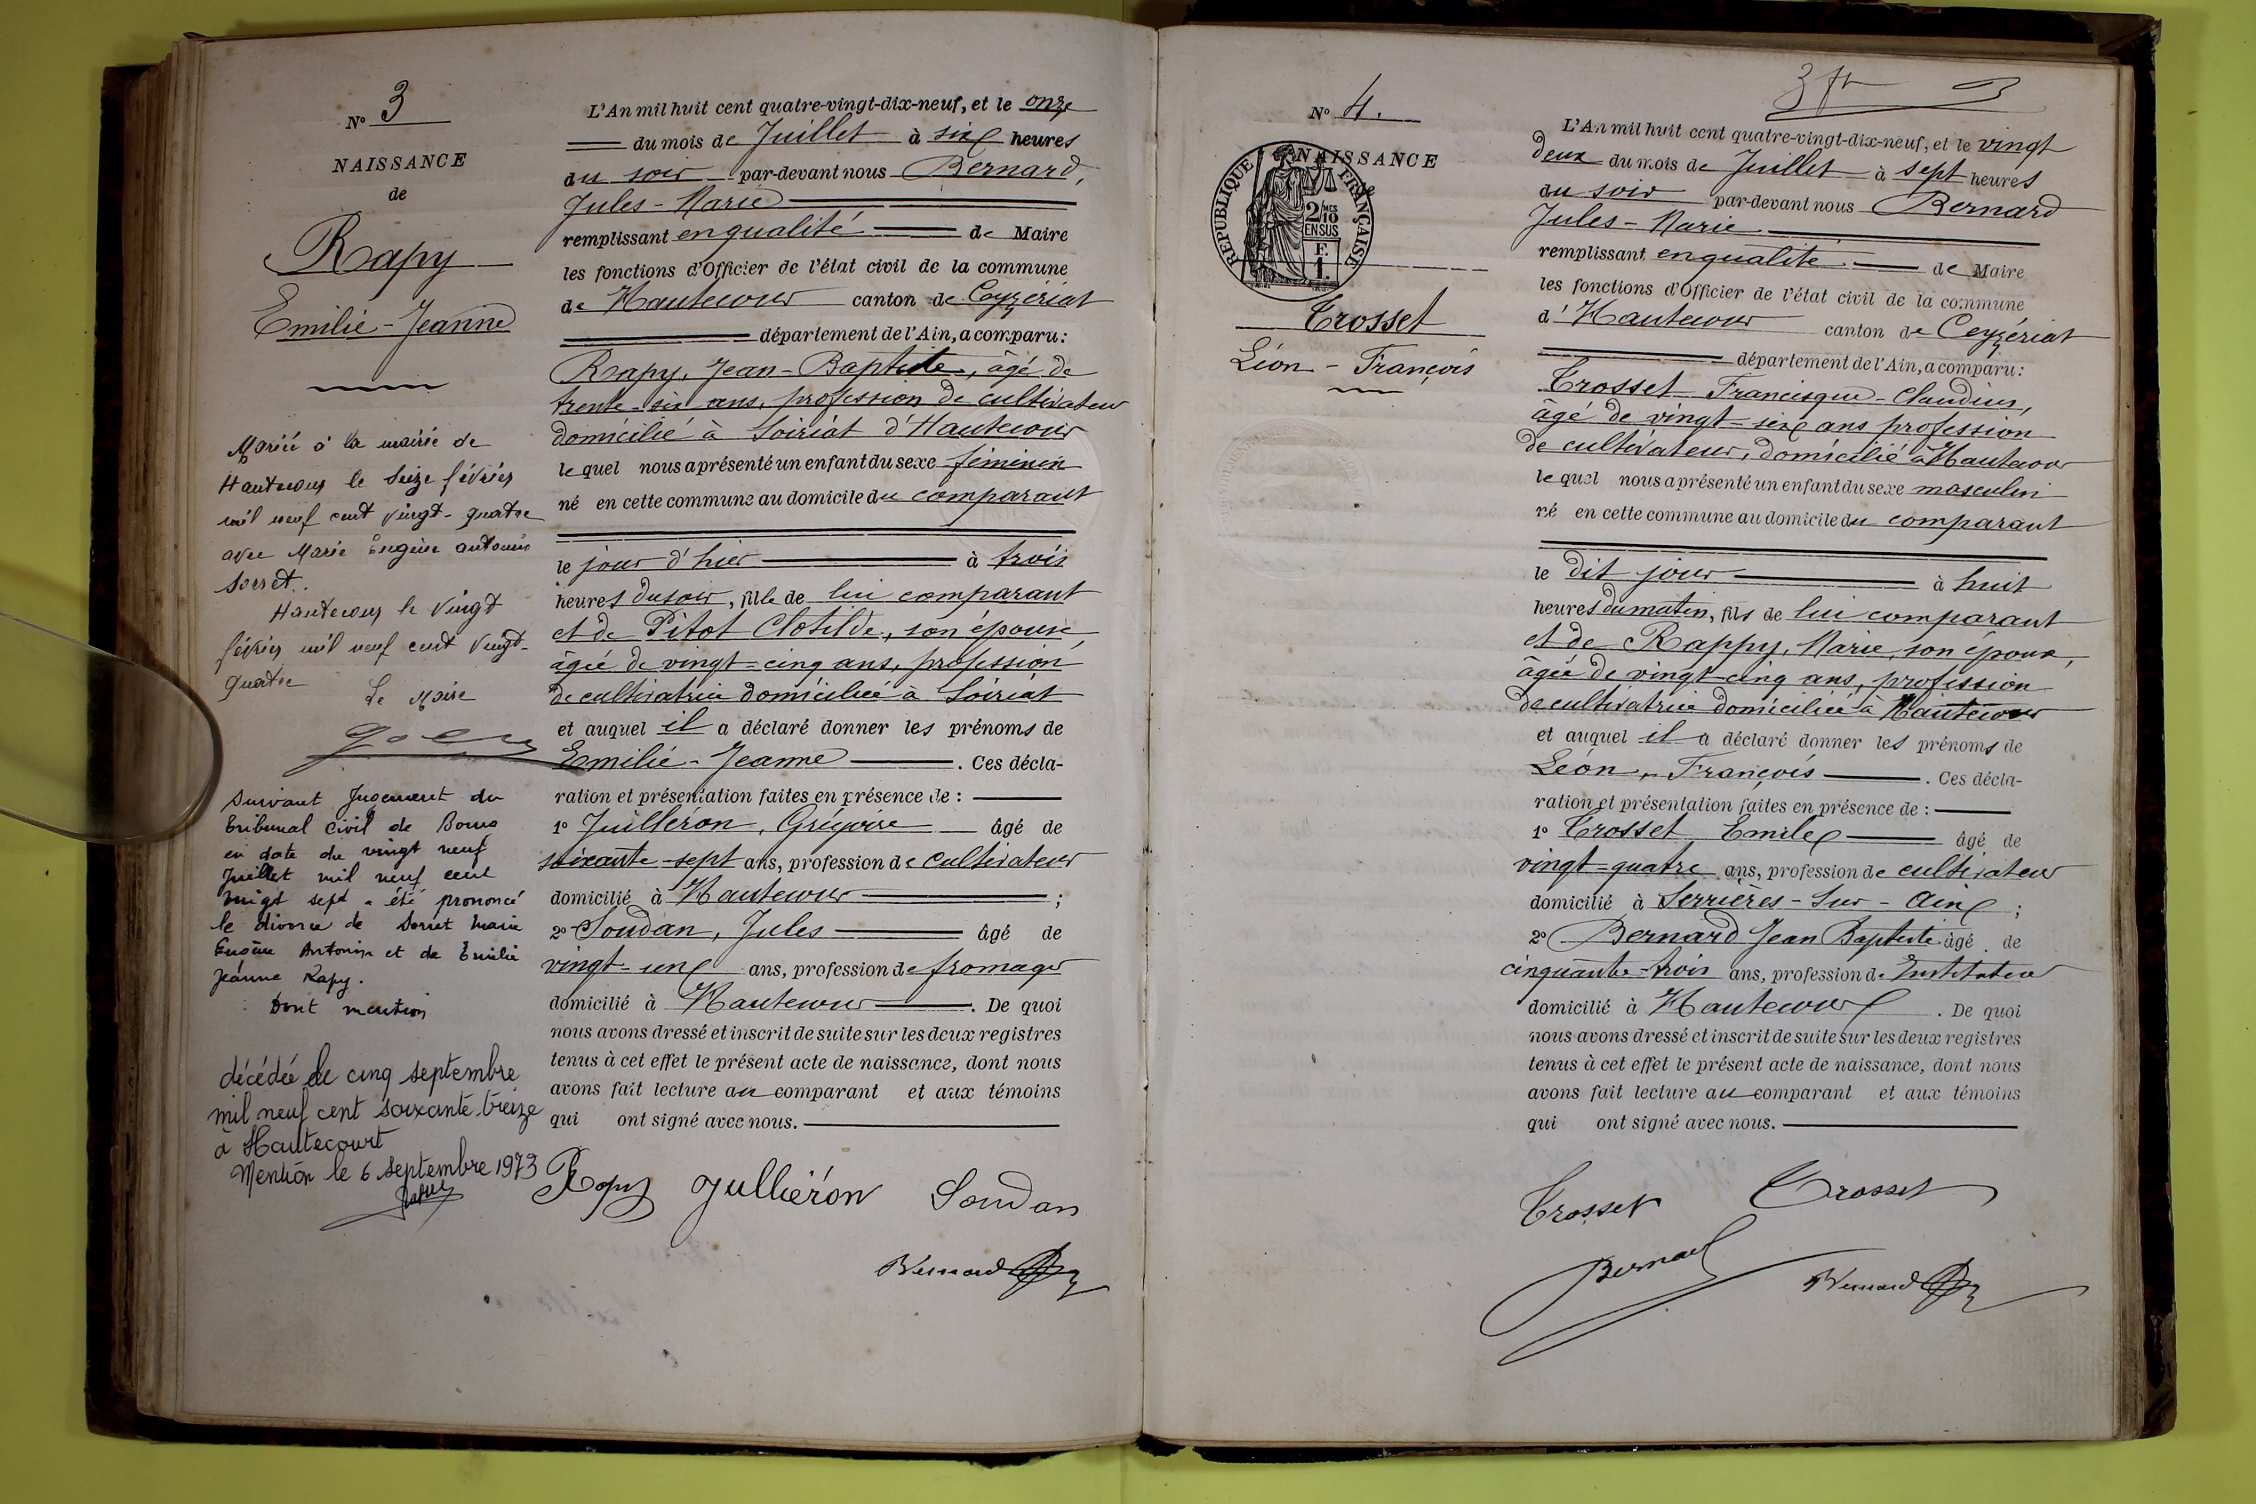 N° 3
NAISSANCE
de
Rapy
Emilie-Jeanne
Mariée à la mairie de
Hautecour le Seize février
mil neuf cent vingt-quatre
avec Marie Eugène Antonin
Sorret.
Hautecour le vingt
février mil neuf cent vingt-
quatre
Le Maire
Suivant Jugement du
tribunal civil de Bourg
en date du vingt neuf
Juillet mil neuf cent
vingt sept a été prononcé
le divorce de Sorret Marie
Eugène Antonin et de Emilie
Jeanne Rapy.
Dont mention
décédée le cinq septembre
mil neuf cent soixante-treize
à Hautecourt
Mention le 6 septembre 1973
L'An mil huit cent quatre-vingt-dix-neuf, et le onze
du mois de Juillet à six heures
du soir par-devant nous Bernard,
Jules-Marie
remplissant en qualité de Maire
les fonctions d'Officier de l'état civil de la commune
de Hautecour canton de Ceyzériat
département de l'Ain, a comparu:
Rapy, Jean-Baptiste, âgé de
trente-six ans, profession de cultivateur
domicilié à Soiriat d'Hautecour
lequel nous a présenté un enfant du sexe féminin
né en cette commune au domicile du comparant
le jour d'hier à trois
heures du soir, fille de lui comparant
et de Pitot Clotilde, son épouse,
âgée de vingt-cinq ans, profession
de cultivatrice domiciliée à Soiriat
et auquel il a déclaré donner les prénoms de
Emilie-Jeanne. Ces décla-
ration et présentation faites en présence de:
1° Juilléron, Grégoire âgé de
soixante-sept ans, profession de cultivateur
domicilié à Hautecour;
2° Soudan, Jules âgé de
vingt-un ans, profession de fromager
domicilié à Hautecour. De quoi
nous avons dressé et inscrit de suite sur les deux registres
tenus à cet effet le présent acte de naissance, dont nous
avons fait lecture au comparant et aux témoins
qui ont signé avec nous.
Rapy Julliéron Soudan
Bernard
3 fr
N° 4.
NAISSANCE
de
RÉPUBLIQUE FRANÇAISE
2/10 MES
EN SUS
F.
1.
Trosset
Léon-François
L'An mil huit cent quatre-vingt-dix-neuf, et le vingt
deux du mois de Juillet à sept heures
du soir par-devant nous Bernard
Jules-Marie
remplissant en qualité de Maire
les fonctions d'Officier de l'état civil de la commune
d'Hautecour canton de Ceyzériat
département de l'Ain, a comparu:
Trosset Francisque-Claudius,
âgé de vingt-six ans profession
de cultivateur, domicilié à Hautecour
lequel nous a présenté un enfant du sexe masculin
né en cette commune au domicile du comparant
le dit jour à huit
heures du matin, fils de lui comparant
et de Rappy, Marie, son épouse,
âgée de vingt-cinq ans, profession
de cultivatrice domiciliée à Hautecour
et auquel il a déclaré donner les prénoms de
Léon, François. Ces décla-
ration et présentation faites en présence de:
1° Trosset Emile âgé de
vingt-quatre ans, profession de cultivateur
domicilié à Serrières-Sur-Ain;
2° Bernard Jean Baptiste âgé de
cinquante-trois ans, profession de Instituteur
domicilié à Hautecour. De quoi
nous avons dressé et inscrit de suite sur les deux registres
tenus à cet effet le présent acte de naissance, dont nous
avons fait lecture au comparant et aux témoins
qui ont signé avec nous.
Trosset Trosset
Bernard Bernard